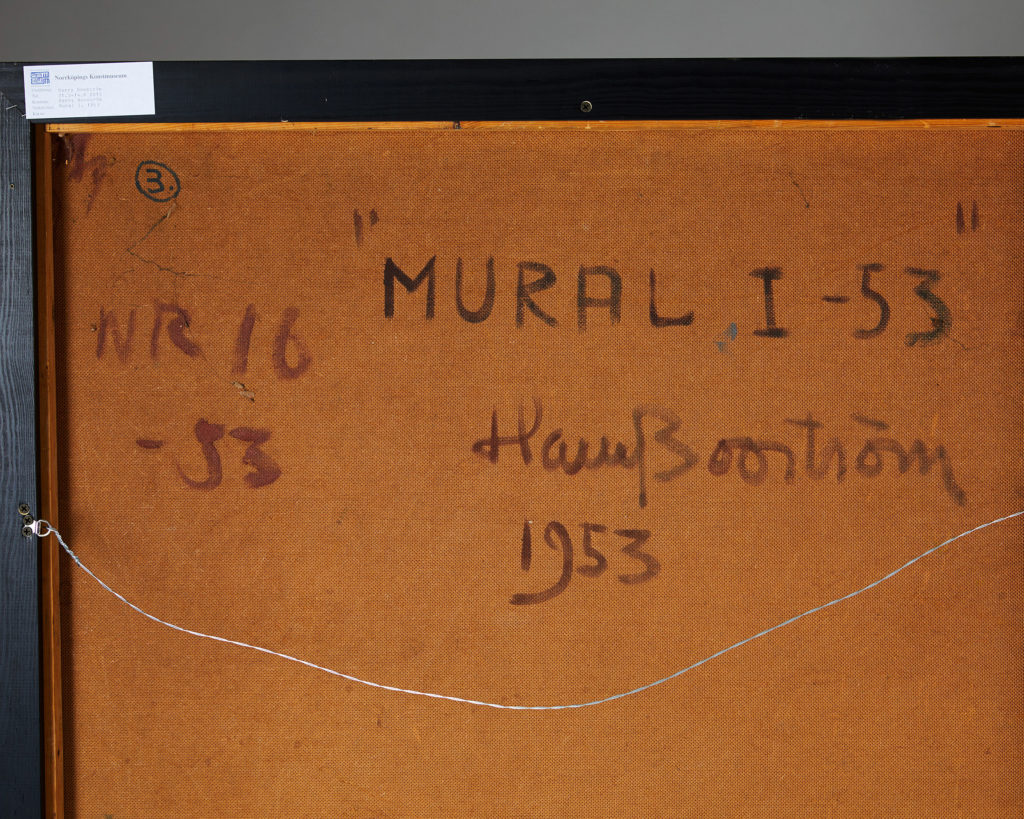 Norrköpings Konstmuseum
3.
"MURAL I -53"
NR 16
-53
Harry Booström
1953